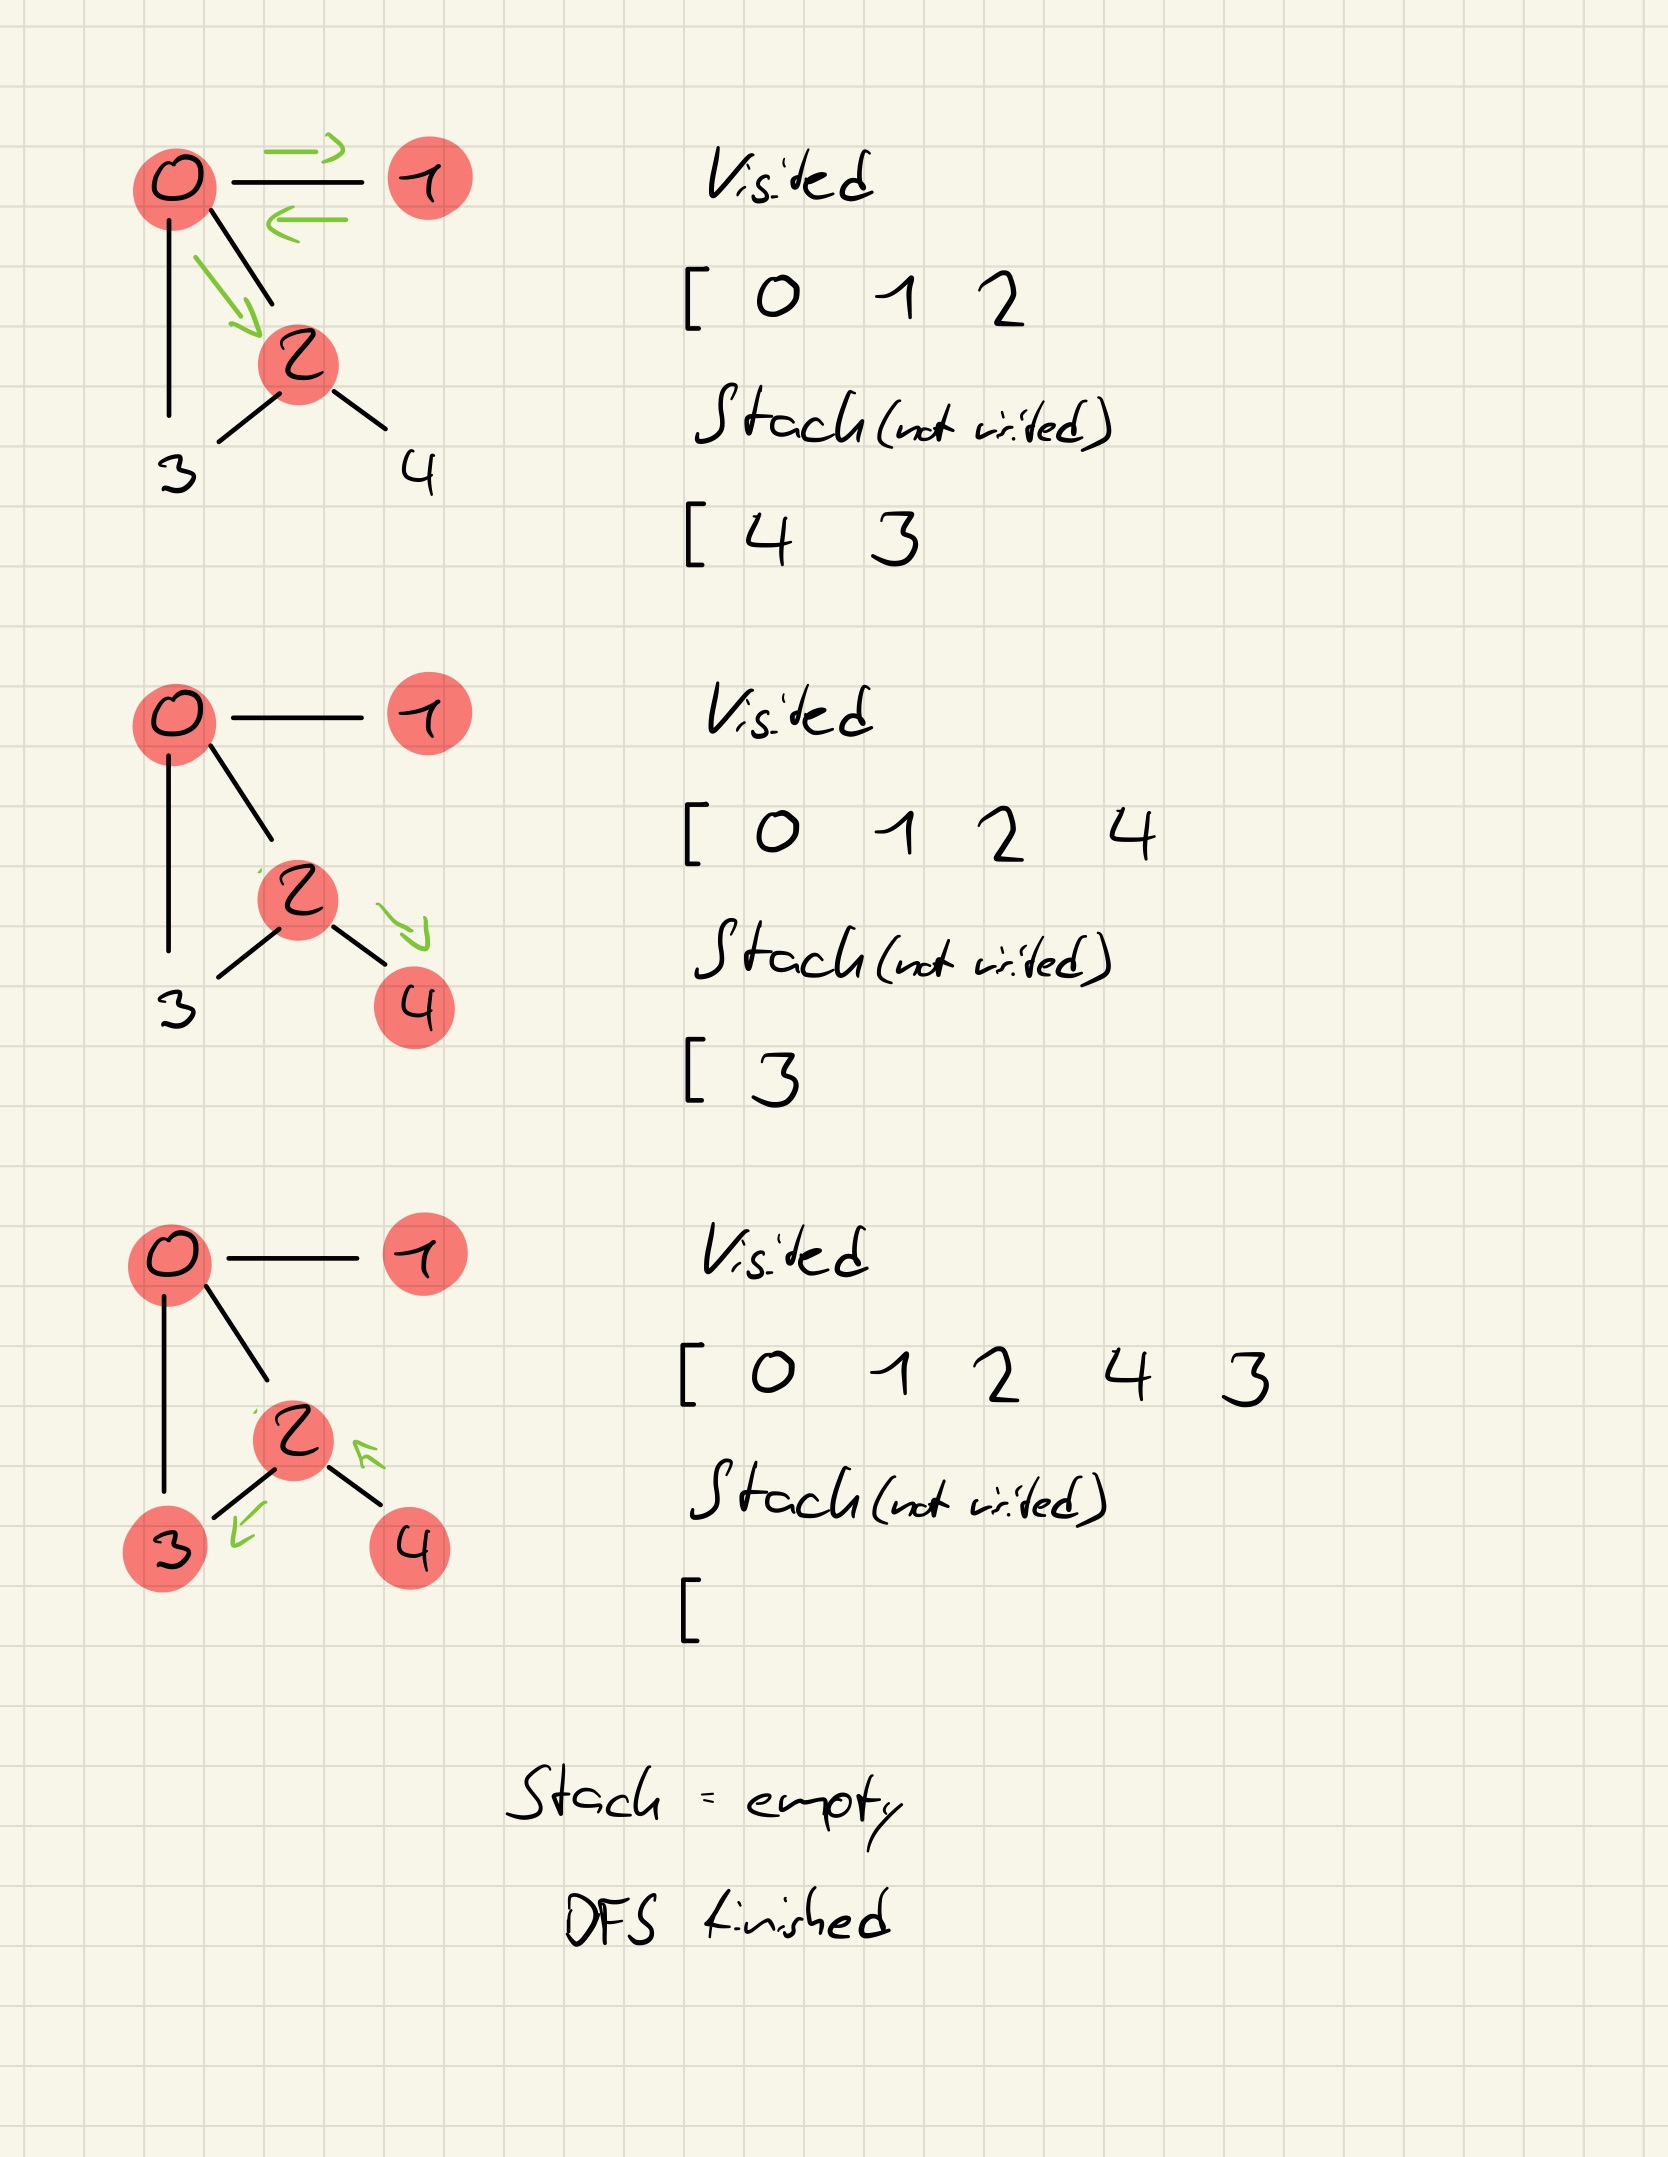 0 1 Visited
[ 0 1 2
2
Stack (not visited)
3 4
[ 4 3
0 1 Visited
[ 0 1 2 4
2
Stack (not visited)
3 4
[ 3
0 1 Visited
[ 0 1 2 4 3
2
Stack (not visited)
3 4
[
Stack = empty
DFS finished